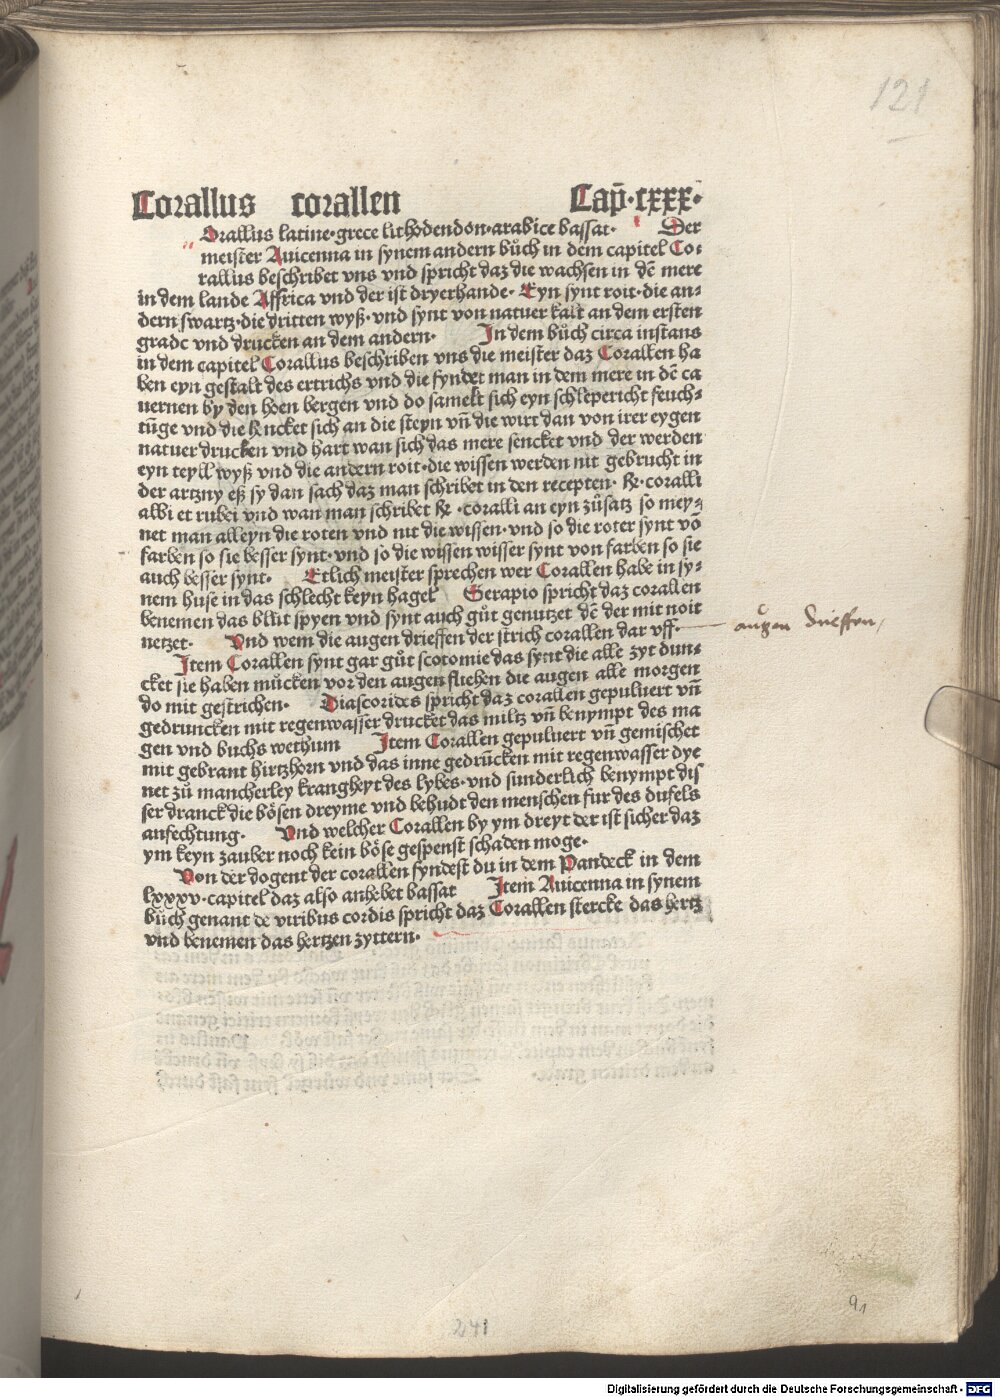 121
Corallus corallen Cap̄·cxxx·
Orallus latine·grece lithodendon·arabice bassat· Der
meister Auicenna in synem andern bůch in dem capitel Co⸗
rallus beschribet vns vnd spricht daz die wachsen in dē mere
in dem lande Affrica vnd der ist dryerhande· Eyn synt roit·die an⸗
dern swartz·die dritten wyß·vnd synt von natuer kalt an dem ersten
gradc vnd drucken an dem andern· In dem bůch circa instans
in dem capitel Corallus beschriben vns die meister daz Corallen ha
ben eyn gestalt des ertrichs vnd die fyndet man in dem mere in dē ca
uernen by den hoen bergen vnd do samelt sich eyn schlepericht feuch⸗
tüge vnd die hencket sich an die steyn vn̄ die wirt dan von irer eygen
natuer drucken vnd hart wan sich das mere sencket vnd der werden
eyn teyll wyß vnd die andern roit·die wissen werden nit gebrucht in
der artzny eß sy dan sach daz man schribet in den recepten· ℞·coralli
albi et rubei vnd wan man schribet ℞·coralli an eyn zůsatz so mey⸗
net man alleyn die roten vnd nit die wissen·vnd so die roter synt vō
farben so sie besser synt·vnd so die wissen wisser synt von farben so sie
auch besser synt· Etlich meister sprechen wer Corallen habe in sy⸗
nem huse in das schlecht keyn hagel Serapio spricht daz corallen
benemen das blůt spyen vnd synt auch gůt genutzet dē der mit noit
netzet· Vnd wem die augen drieffen der strich corallen dar vff·
augen drieffen
Item Corallen synt gar gůt scotomie das synt die alle zyt dun⸗
cket sie haben můcken vor den augen fliehen die augen alle morgen
do mit gestrichen· Diascorides spricht daz corallen gepuluert vn̄
gedruncken mit regenwasser drucket das miltz vn̄ benympt des ma
gen vnd buchs wethum Item Corallen gepuluert vn̄ gemischet
mit gebrant hirtzhorn vnd das inne gedrücken mit regenwasser dye
net zů mancherley krangheyt des lybes·vnd sunderlich benympt dis
ser dranck die bösen dreyme vnd behudt den menschen fur des dufels
anfechtung· Vnd welcher Corallen by ym dreyt der ist sicher daz
ym keyn zauber noch kein böse gespenst schaden moge·
Von der dogent der corallen fyndest du in dem Pandeck in dem
lxxxv·capitel daz also anhebet bassat Item Auicenna in synem
bůch genant de viribus cordis spricht daz Corallen stercke das hertz
vnd benemen das hertzen zyttern·
91
241
Digitalisierung gefördert durch die Deutsche Forschungsgemeinschaft - DFG